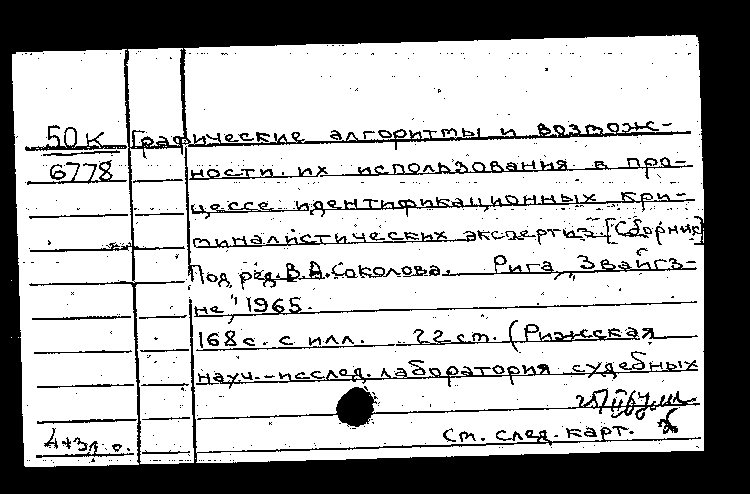 50к Графические алгоритмы и возмож-
6778 ности их использования в про-
цессе идентификационных кри-
миналистических экспертиз. [Сборник]
Под ред. В.А. Соколова. Рига, "Звайгз-
не", 1965.
168 с. с илл. 22 см. (Рижская
науч.-исслед. лаборатория судебных
4+3л о. См. след. карт.